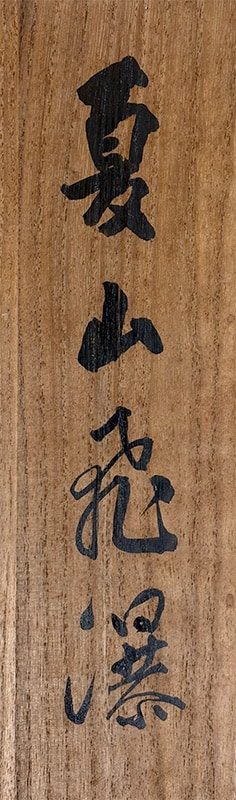 夏山飛瀑